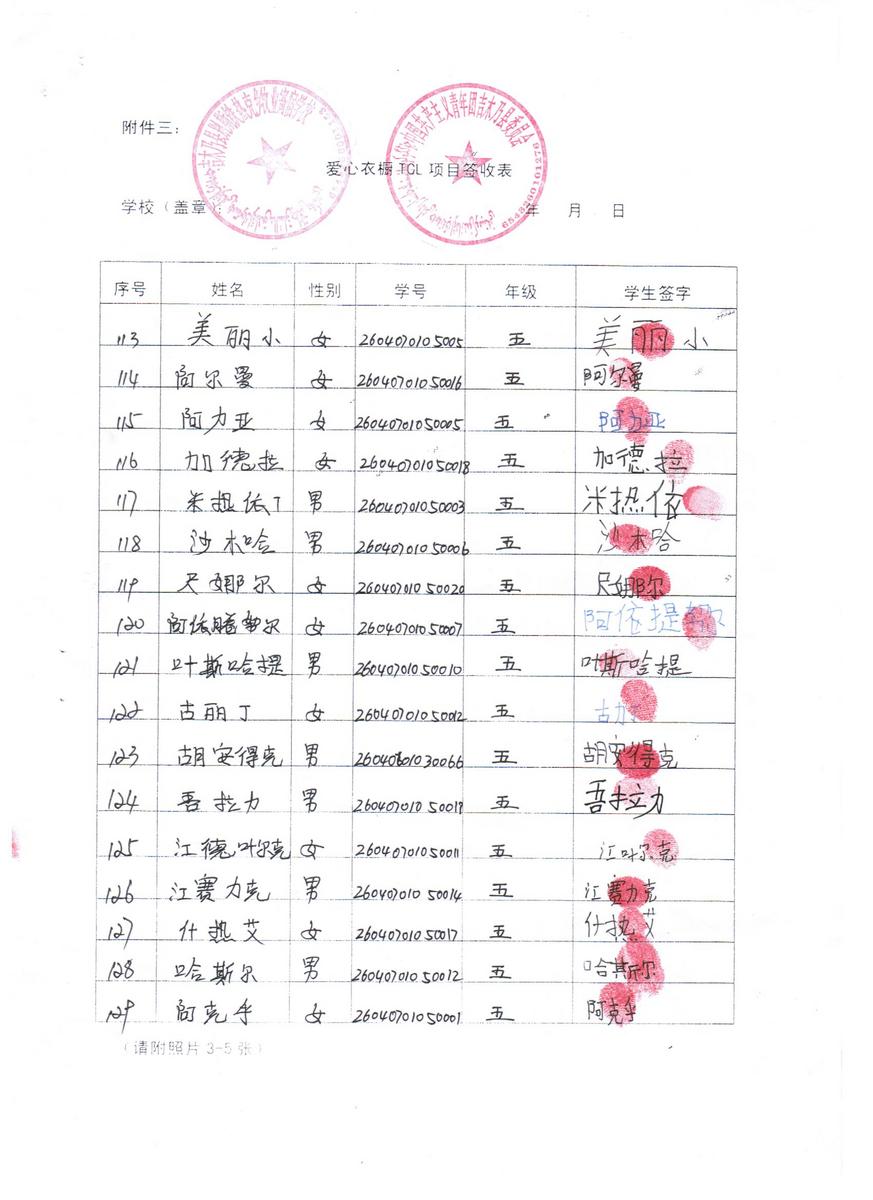 附件三：
爱心衣橱 TCL 项目签收表
学校（盖章）： 年 月 日
共产主义青年团吉木乃县委员会
6543260101219
序号 姓名 性别 学号 年级 学生签字
113 美丽小 女 2604070105005 五 美丽小
114 阿尔曼 女 26040701050016 五 阿尔曼
115 阿力亚 女 26040701050005 五 阿力亚
116 加德拉 女 26040701050018 五 加德拉
117 米提依丁 男 26040701050003 五 米热依
118 沙木哈 男 26040701050006 五 沙木哈
119 尺娜尔 女 26040701050020 五 尺娜尔
120 阿依 尔 女 26040701050007 五 阿依提 尔
121 叶斯哈提 男 26040701050010 五 叶斯哈提
122 古丽丁 女 26040701050012 五 古力丁
123 胡安得克 男 26040601030066 五 胡安得克
124 吾拉力 男 26040701050019 五 吾拉力
125 江德叶尔克 女 26040701050011 五 江叶尔克
126 江赛力克 男 26040701050014 五 江赛力克
127 什热艾 女 26040701050017 五 什热艾
128 哈斯尔 男 26040701050012 五 哈斯尔
129 阿克乎 女 26040701050001 五 阿克乎
（请附照片 3-5 张）